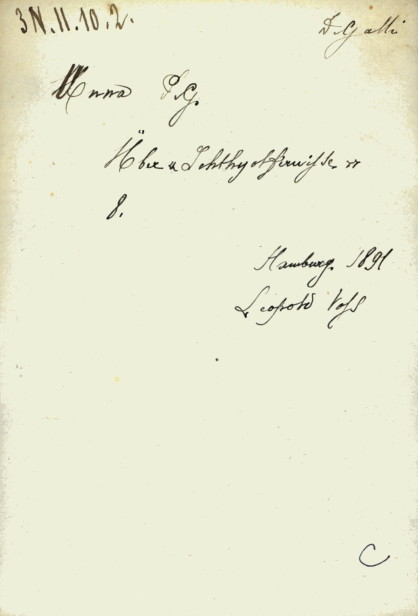 3 N. II. 10. 2.
D. Galli
Unna P. G.
Über Ichthyol
8.
Hamburg. 1891
Leopold Voss
C